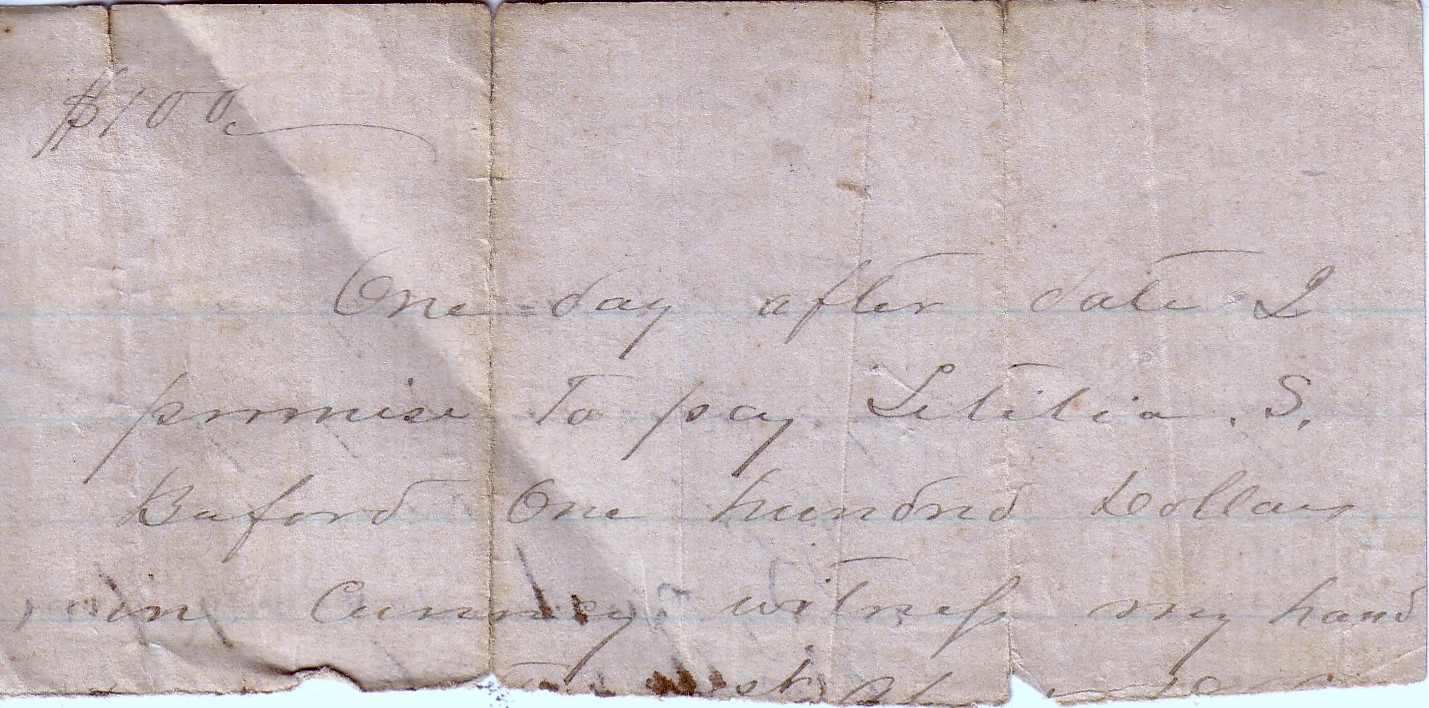 $100
One day after date I
promise to pay Letitia . S.
Buford One hundred Dollars
in Currency witness my hand